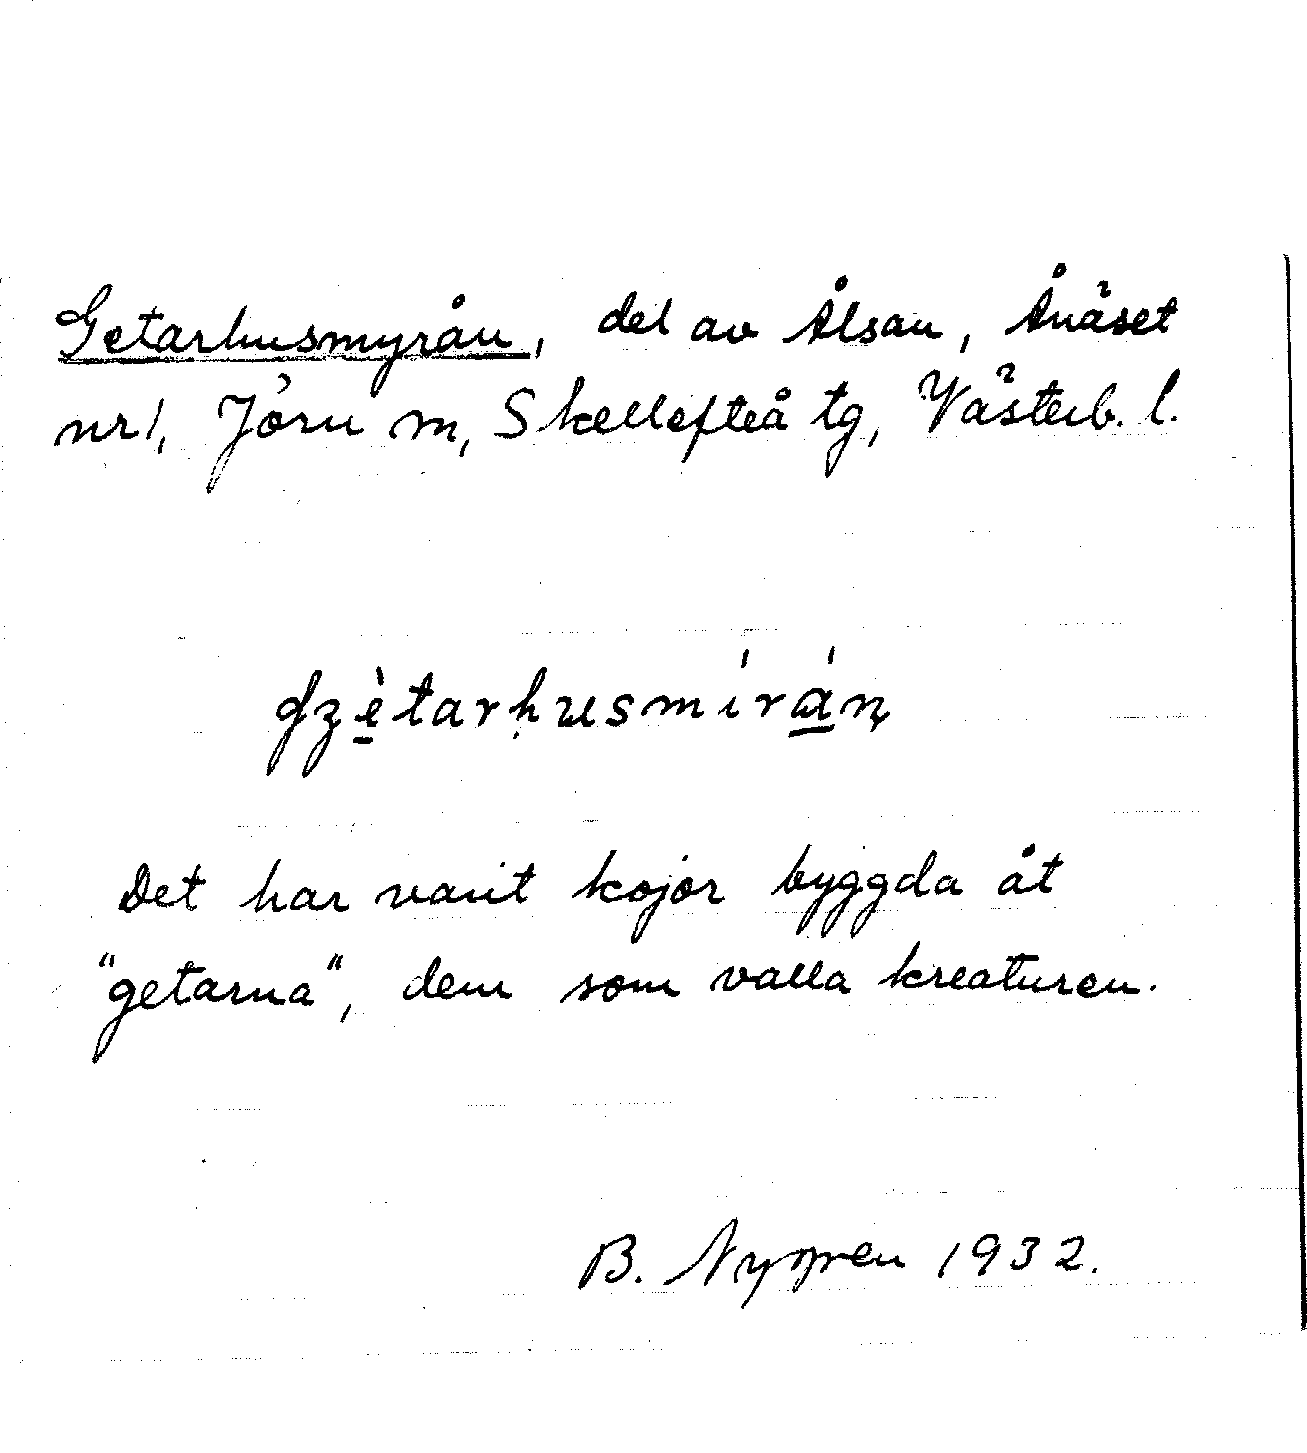 Getarhusmyrån, del av Ålsån, Ånäset
nr 1, Jörn m, Skellefteå tg, Västerb. l.
Det har varit kojor byggda åt
"getarna", dem som valla kreaturen.
B. Nygren 1932.